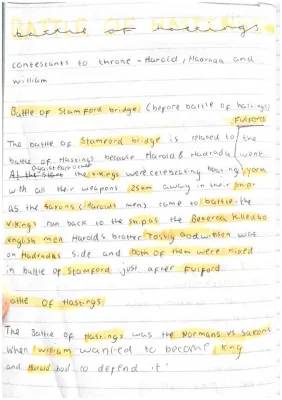 BATTLE OF HASTINGS
battle of hastings
contestants to throne - Harold, Hadrada and
william
Battle of Stamford bridge (before battle of hastings)
Fulford
The battle of Stamford bridge is related to the
battle of Hastings because Harold & Hadrada went
against each other
the vikings were celebrating beating York
with all their weapons 25km away in their ships
as the Saxons (Harolds men) came to battle the
vikings ran back to the ships as the killed 40
english men Harold's brother Tostig Godwinson was
on Hadradas side and both of them were killed
in battle of Stamford just after Fulford
attle OF Hastings
The Battle of Hastings was the Normans vs Saxons
When william wanted to become king
and Harold had to defend it